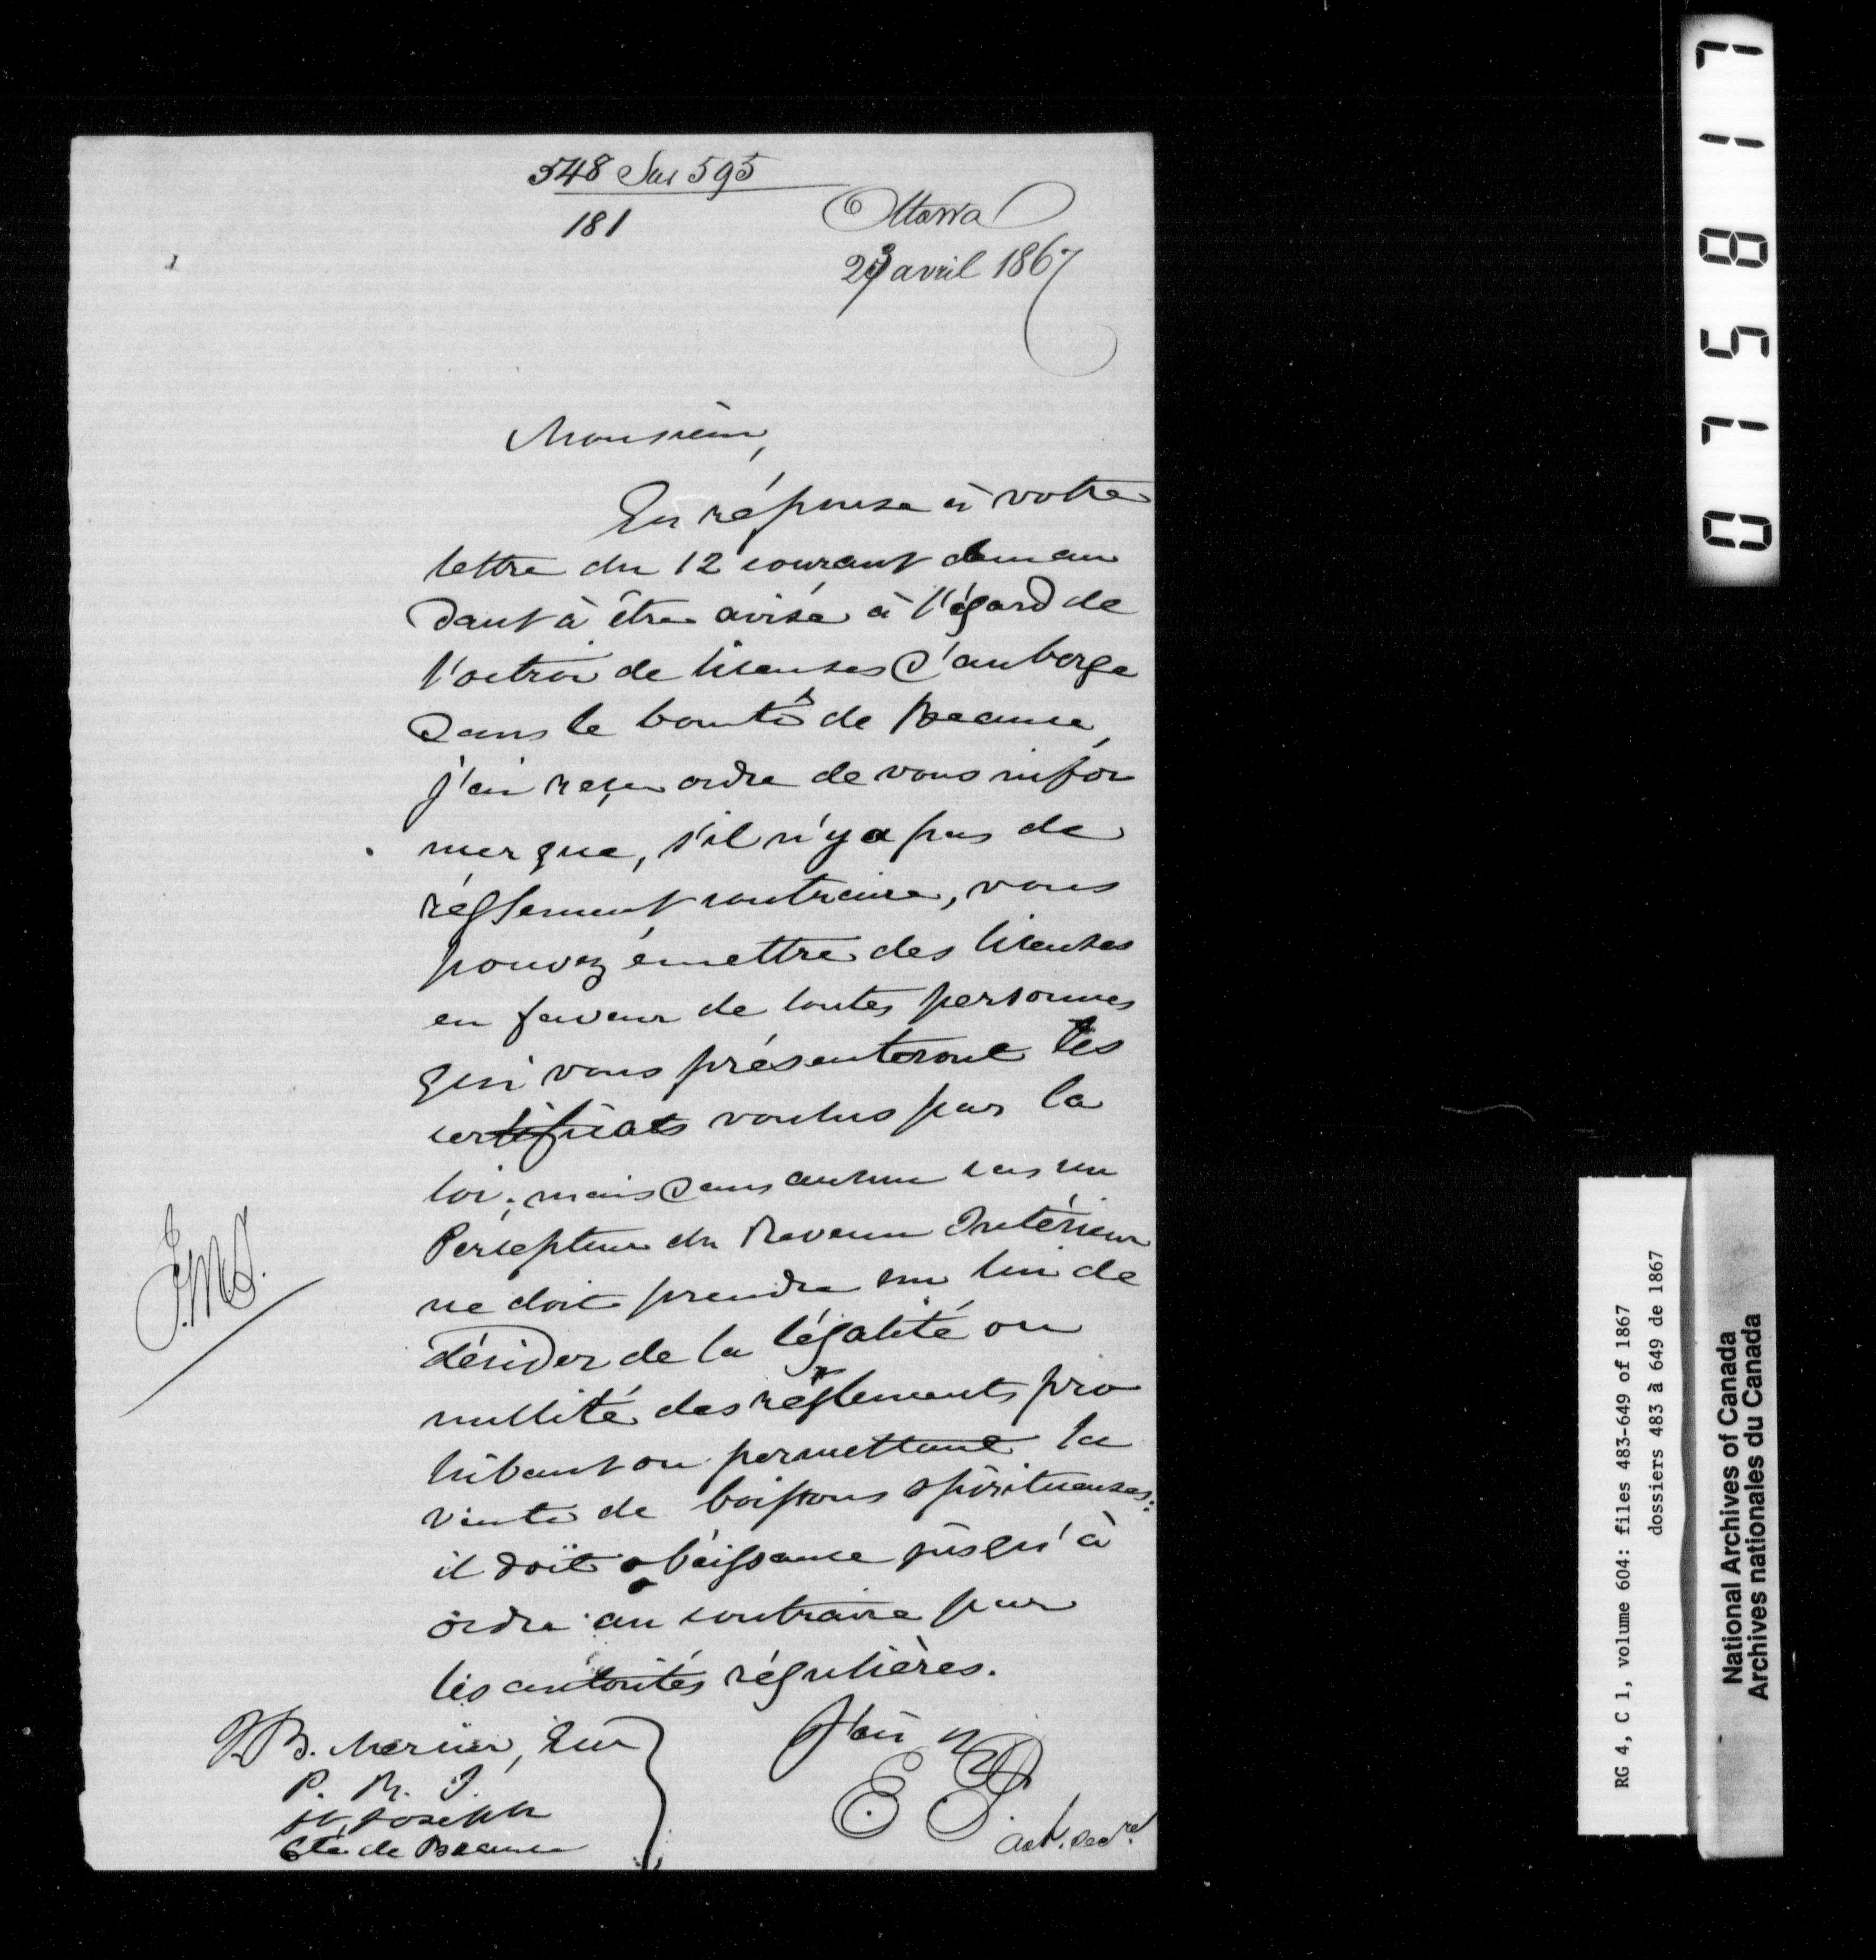 548 Sur 595
181
Ottawa
23 avril 1867
Monsieur,
En réponse à votre
lettre du 12 courant deman
dant à être avisé à l'égard de
l'octroi de licenses d'auberge
dans le Comté de Beauce,
j'ai reçu ordre de vous infor
mer que, s'il n'y a pas de
réglement contraire, vous
pouvez émettre des licenses
en faveur de toutes personnes
qui vous présenteront les
certificats voulus par la
loi; mais dans aucun cas un
Percepteur du Revenu Intérieur
ne doit prendre sur lui de
décider de la légalité ou
nullité des réglements pro
hibant ou permettant la
vente de boissons spiritueuses:
il doit obéissance jusqu'à
ordre au contraire par
les autorités régulières.
J'ai
E P.
Asst. Secre.
J.B. Mercier, Eur
P. R. I.
St. Joseph
Cté de Beauce
RG 4, C 1, volume 604: files 483-649 of 1867
dossiers 483 à 649 de 1867
National Archives of Canada
Archives nationales du Canada